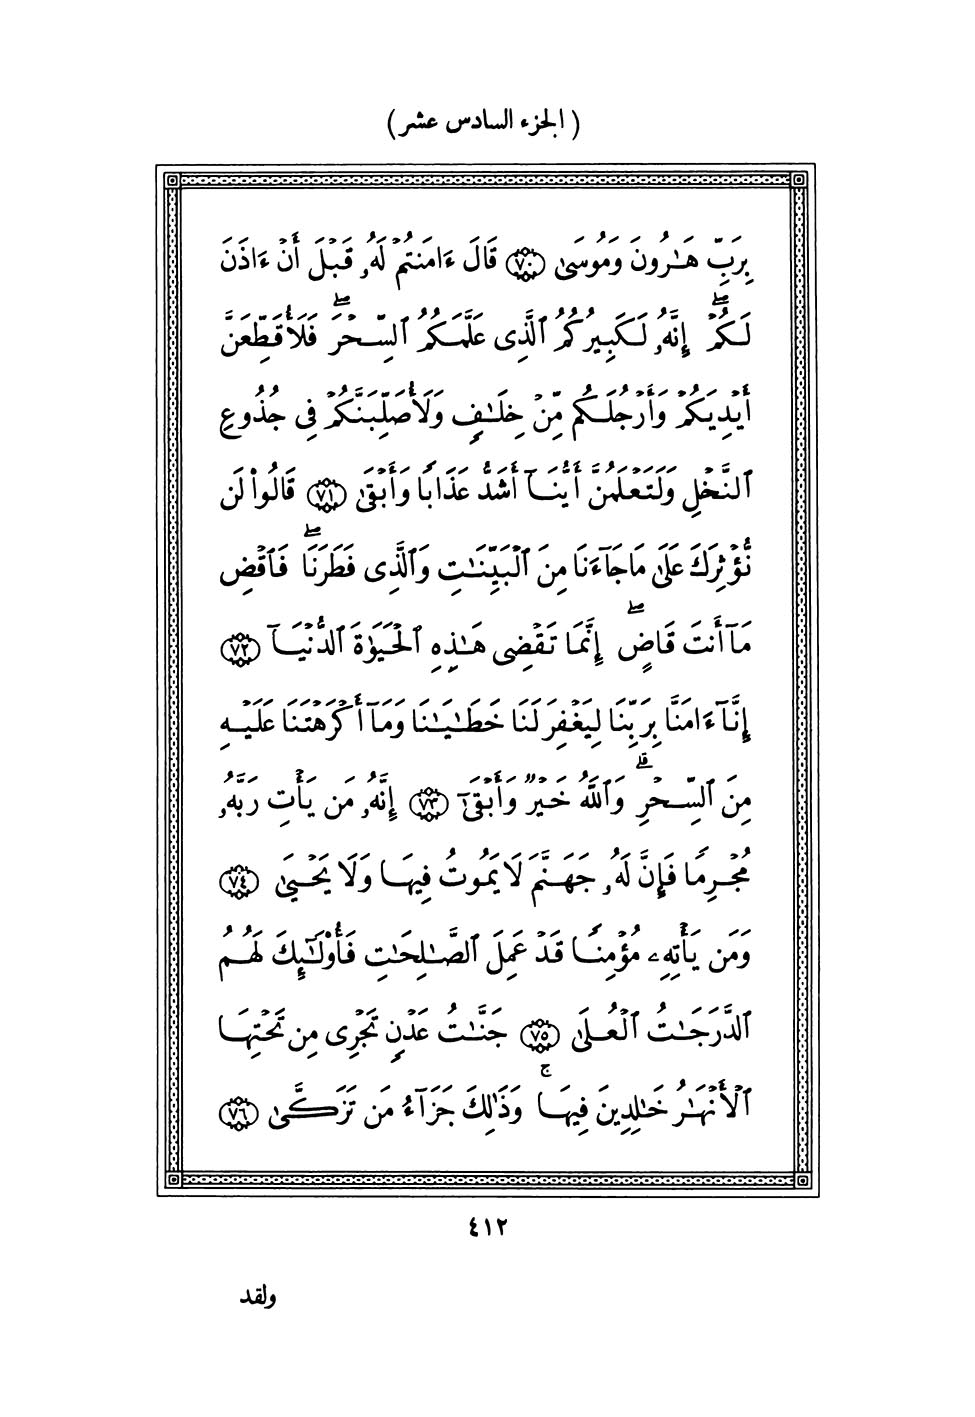 ( الجزء السادس عشر )
بِرَبِّ هَـٰرُونَ وَمُوسَىٰ ٧٠ قَالَ ءَامَنتُمْ لَهُۥ قَبْلَ أَنْ ءَاذَنَ
لَكُمْۖ إِنَّهُۥ لَكَبِيرُكُمُ ٱلَّذِى عَلَّمَكُمُ ٱلسِّحْرَۖ فَلَأُقَطِّعَنَّ
أَيْدِيَكُمْ وَأَرْجُلَكُم مِّنْ خِلَـٰفٍ وَلَأُصَلِّبَنَّكُمْ فِى جُذُوعِ
ٱلنَّخْلِ وَلَتَعْلَمُنَّ أَيُّنَآ أَشَدُّ عَذَابًا وَأَبْقَىٰ ٧١ قَالُوا۟ لَن
نُّؤْثِرَكَ عَلَىٰ مَا جَآءَنَا مِنَ ٱلْبَيِّنَـٰتِ وَٱلَّذِى فَطَرَنَاۖ فَٱقْضِ
مَآ أَنتَ قَاضٍۖ إِنَّمَا تَقْضِى هَـٰذِهِ ٱلْحَيَوٰةَ ٱلدُّنْيَآ ٧٢
إِنَّآ ءَامَنَّا بِرَبِّنَا لِيَغْفِرَ لَنَا خَطَـٰيَـٰنَا وَمَآ أَكْرَهْتَنَا عَلَيْهِ
مِنَ ٱلسِّحْرِۗ وَٱللَّهُ خَيْرٌ وَأَبْقَىٰٓ ٧٣ إِنَّهُۥ مَن يَأْتِ رَبَّهُۥ
مُجْرِمًا فَإِنَّ لَهُۥ جَهَنَّمَ لَا يَمُوتُ فِيهَا وَلَا يَحْيَىٰ ٧٤
وَمَن يَأْتِهِۦ مُؤْمِنًا قَدْ عَمِلَ ٱلصَّـٰلِحَـٰتِ فَأُو۟لَـٰٓئِكَ لَهُمُ
ٱلدَّرَجَـٰتُ ٱلْعُلَىٰ ٧٥ جَنَّـٰتُ عَدْنٍ تَجْرِى مِن تَحْتِهَا
ٱلْأَنْهَـٰرُ خَـٰلِدِينَ فِيهَاۚ وَذَٰلِكَ جَزَآءُ مَن تَزَكَّىٰ ٧٦
٤١٢
ولقد